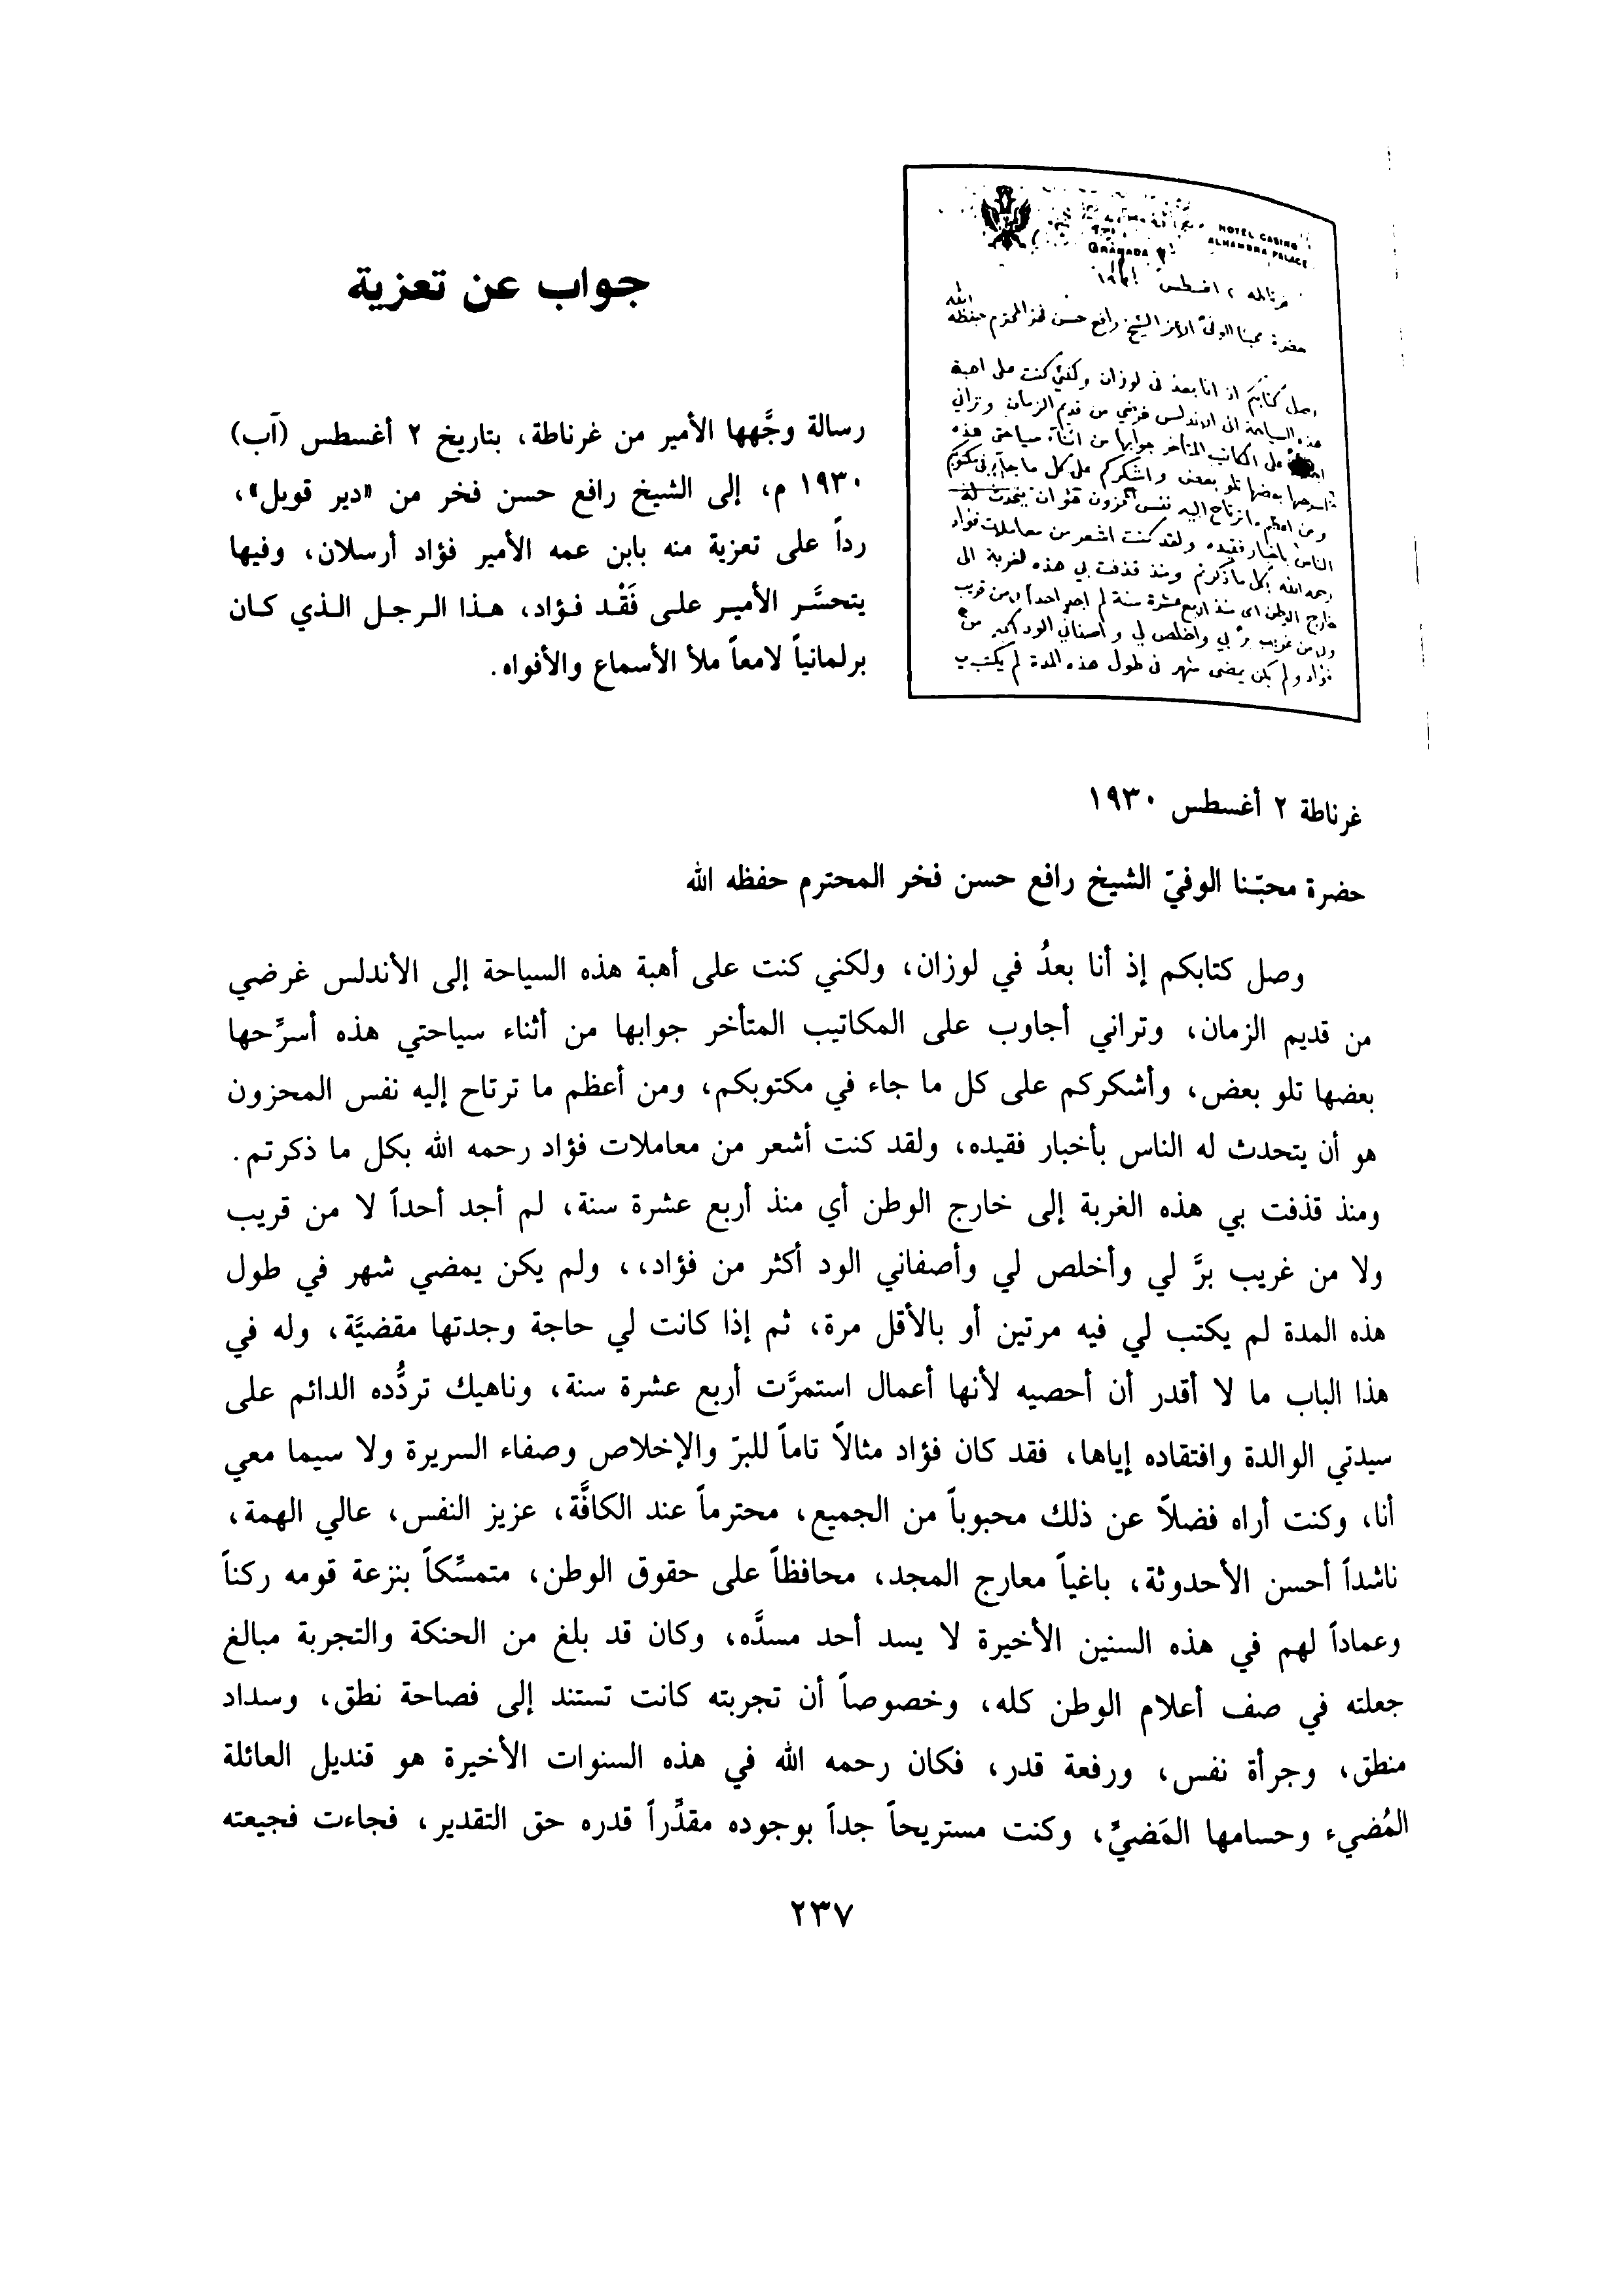 HOTEL CASINO
ALHAMBRA PALACE
GRANADA
غرناطه ٢ اغسطس
حضرة محبنا الوفيّ الأعز الشيخ رافع حسن فخر المحترم حفظه الله
وصل كتابكم اذ انا بعد في لوزان ولكني كنت على اهبة
هذه السياحة الى الاندلس غرضي من قديم الزمان وتراني
على المكاتيب المتأخر جوابها من اثناء سياحتي هذه
اسرحها بعضها تلو بعض واشكركم على كل ما جاء في مكتوبكم
ومن اعظم ما ترتاح اليه نفس المحزون هو ان يتحدث له
الناس باخبار فقيده ولقد كنت اشعر من معاملات فؤاد
رحمه الله بكل ما ذكرتم ومنذ قذفت بي هذه الغربة الى
خارج الوطن اي منذ اربع عشرة سنة لم اجد احداً لا من قريب
ولا من غريب برّ بي واخلص لي واصفاني الود اكثر من
فؤاد ولم يكن يمضي شهر في طول هذه المدة لم يكتب لي
جواب عن تعزية
رسالة وجَّهها الأمير من غرناطة، بتاريخ ٢ أغسطس (آب)
١٩٣٠ م، إلى الشيخ رافع حسن فخر من «دير قوبل»،
رداً على تعزية منه بابن عمه الأمير فؤاد أرسلان، وفيها
يتحسَّر الأمير على فَقْد فؤاد، هذا الرجل الذي كان
برلمانياً لامعاً ملأ الأسماع والأفواه.
غرناطة ٢ أغسطس ١٩٣٠
حضرة محبّنا الوفيّ الشيخ رافع حسن فخر المحترم حفظه الله
وصل كتابكم إذ أنا بعدُ في لوزان، ولكني كنت على أهبة هذه السياحة إلى الأندلس غرضي
من قديم الزمان، وتراني أجاوب على المكاتيب المتأخر جوابها من أثناء سياحتي هذه أسرِّحها
بعضها تلو بعض، وأشكركم على كل ما جاء في مكتوبكم، ومن أعظم ما ترتاح إليه نفس المحزون
هو أن يتحدث له الناس بأخبار فقيده، ولقد كنت أشعر من معاملات فؤاد رحمه الله بكل ما ذكرتم.
ومنذ قذفت بي هذه الغربة إلى خارج الوطن أي منذ أربع عشرة سنة، لم أجد أحداً لا من قريب
ولا من غريب برَّ لي وأخلص لي وأصفاني الود أكثر من فؤاد،، ولم يكن يمضي شهر في طول
هذه المدة لم يكتب لي فيه مرتين أو بالأقل مرة، ثم إذا كانت لي حاجة وجدتها مقضيَّة، وله في
هذا الباب ما لا أقدر أن أحصيه لأنها أعمال استمرَّت أربع عشرة سنة، وناهيك تردُّده الدائم على
سيدتي الوالدة وافتقاده إياها، فقد كان فؤاد مثالاً تاماً للبرّ والإخلاص وصفاء السريرة ولا سيما معي
أنا، وكنت أراه فضلاً عن ذلك محبوباً من الجميع، محترماً عند الكافَّة، عزيز النفس، عالي الهمة،
ناشداً أحسن الأحدوثة، باغياً معارج المجد، محافظاً على حقوق الوطن، متمسِّكاً بنزعة قومه ركناً
وعماداً لهم في هذه السنين الأخيرة لا يسد أحد مسدَّه، وكان قد بلغ من الحنكة والتجربة مبالغ
جعلته في صف أعلام الوطن كله، وخصوصاً أن تجربته كانت تستند إلى فصاحة نطق، وسداد
منطق، وجرأة نفس، ورفعة قدر، فكان رحمه الله في هذه السنوات الأخيرة هو قنديل العائلة
المُضيء وحسامها المَضيّ، وكنت مستريحاً جداً بوجوده مقدِّراً قدره حق التقدير، فجاءت فجيعته
٢٣٧